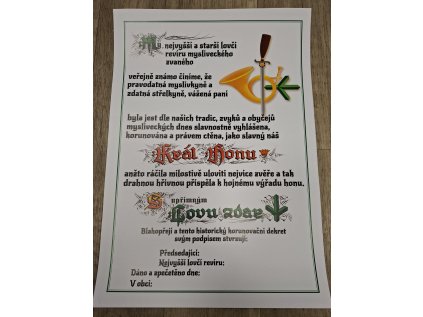 My nejvyšší a starší lovčí
revíru mysliveckého
zvaného
veřejně známo činíme, že
pravodatná myslivkyně a
zdatná střelkyně, vážená paní
byla jest dle našich tradic, zvyků a obyčejů
mysliveckých dnes slavnostně vyhlášena,
korunována a právem ctěna, jako slavný náš
Král Honu
anžto ráčila milostivě uloviti nejvíce zvěře a tak
drahnou hřivnou přispěla k hojnému výřadu honu.
S upřímným
Lovu zdar
Blahopřejí a tento historický korunovační dekret
svým podpisem stvrzují:
Předsedající:
Nejvyšší lovčí revíru:
Dáno a zpečetěno dne:
V obci: